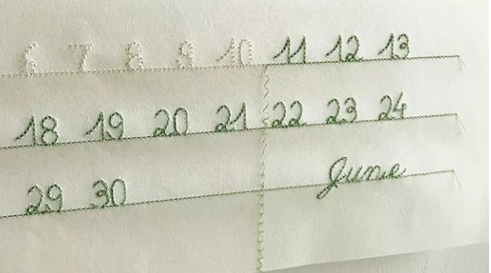 6 7 8 9 10 11 12 13
18 19 20 21 22 23 24
29 30 June